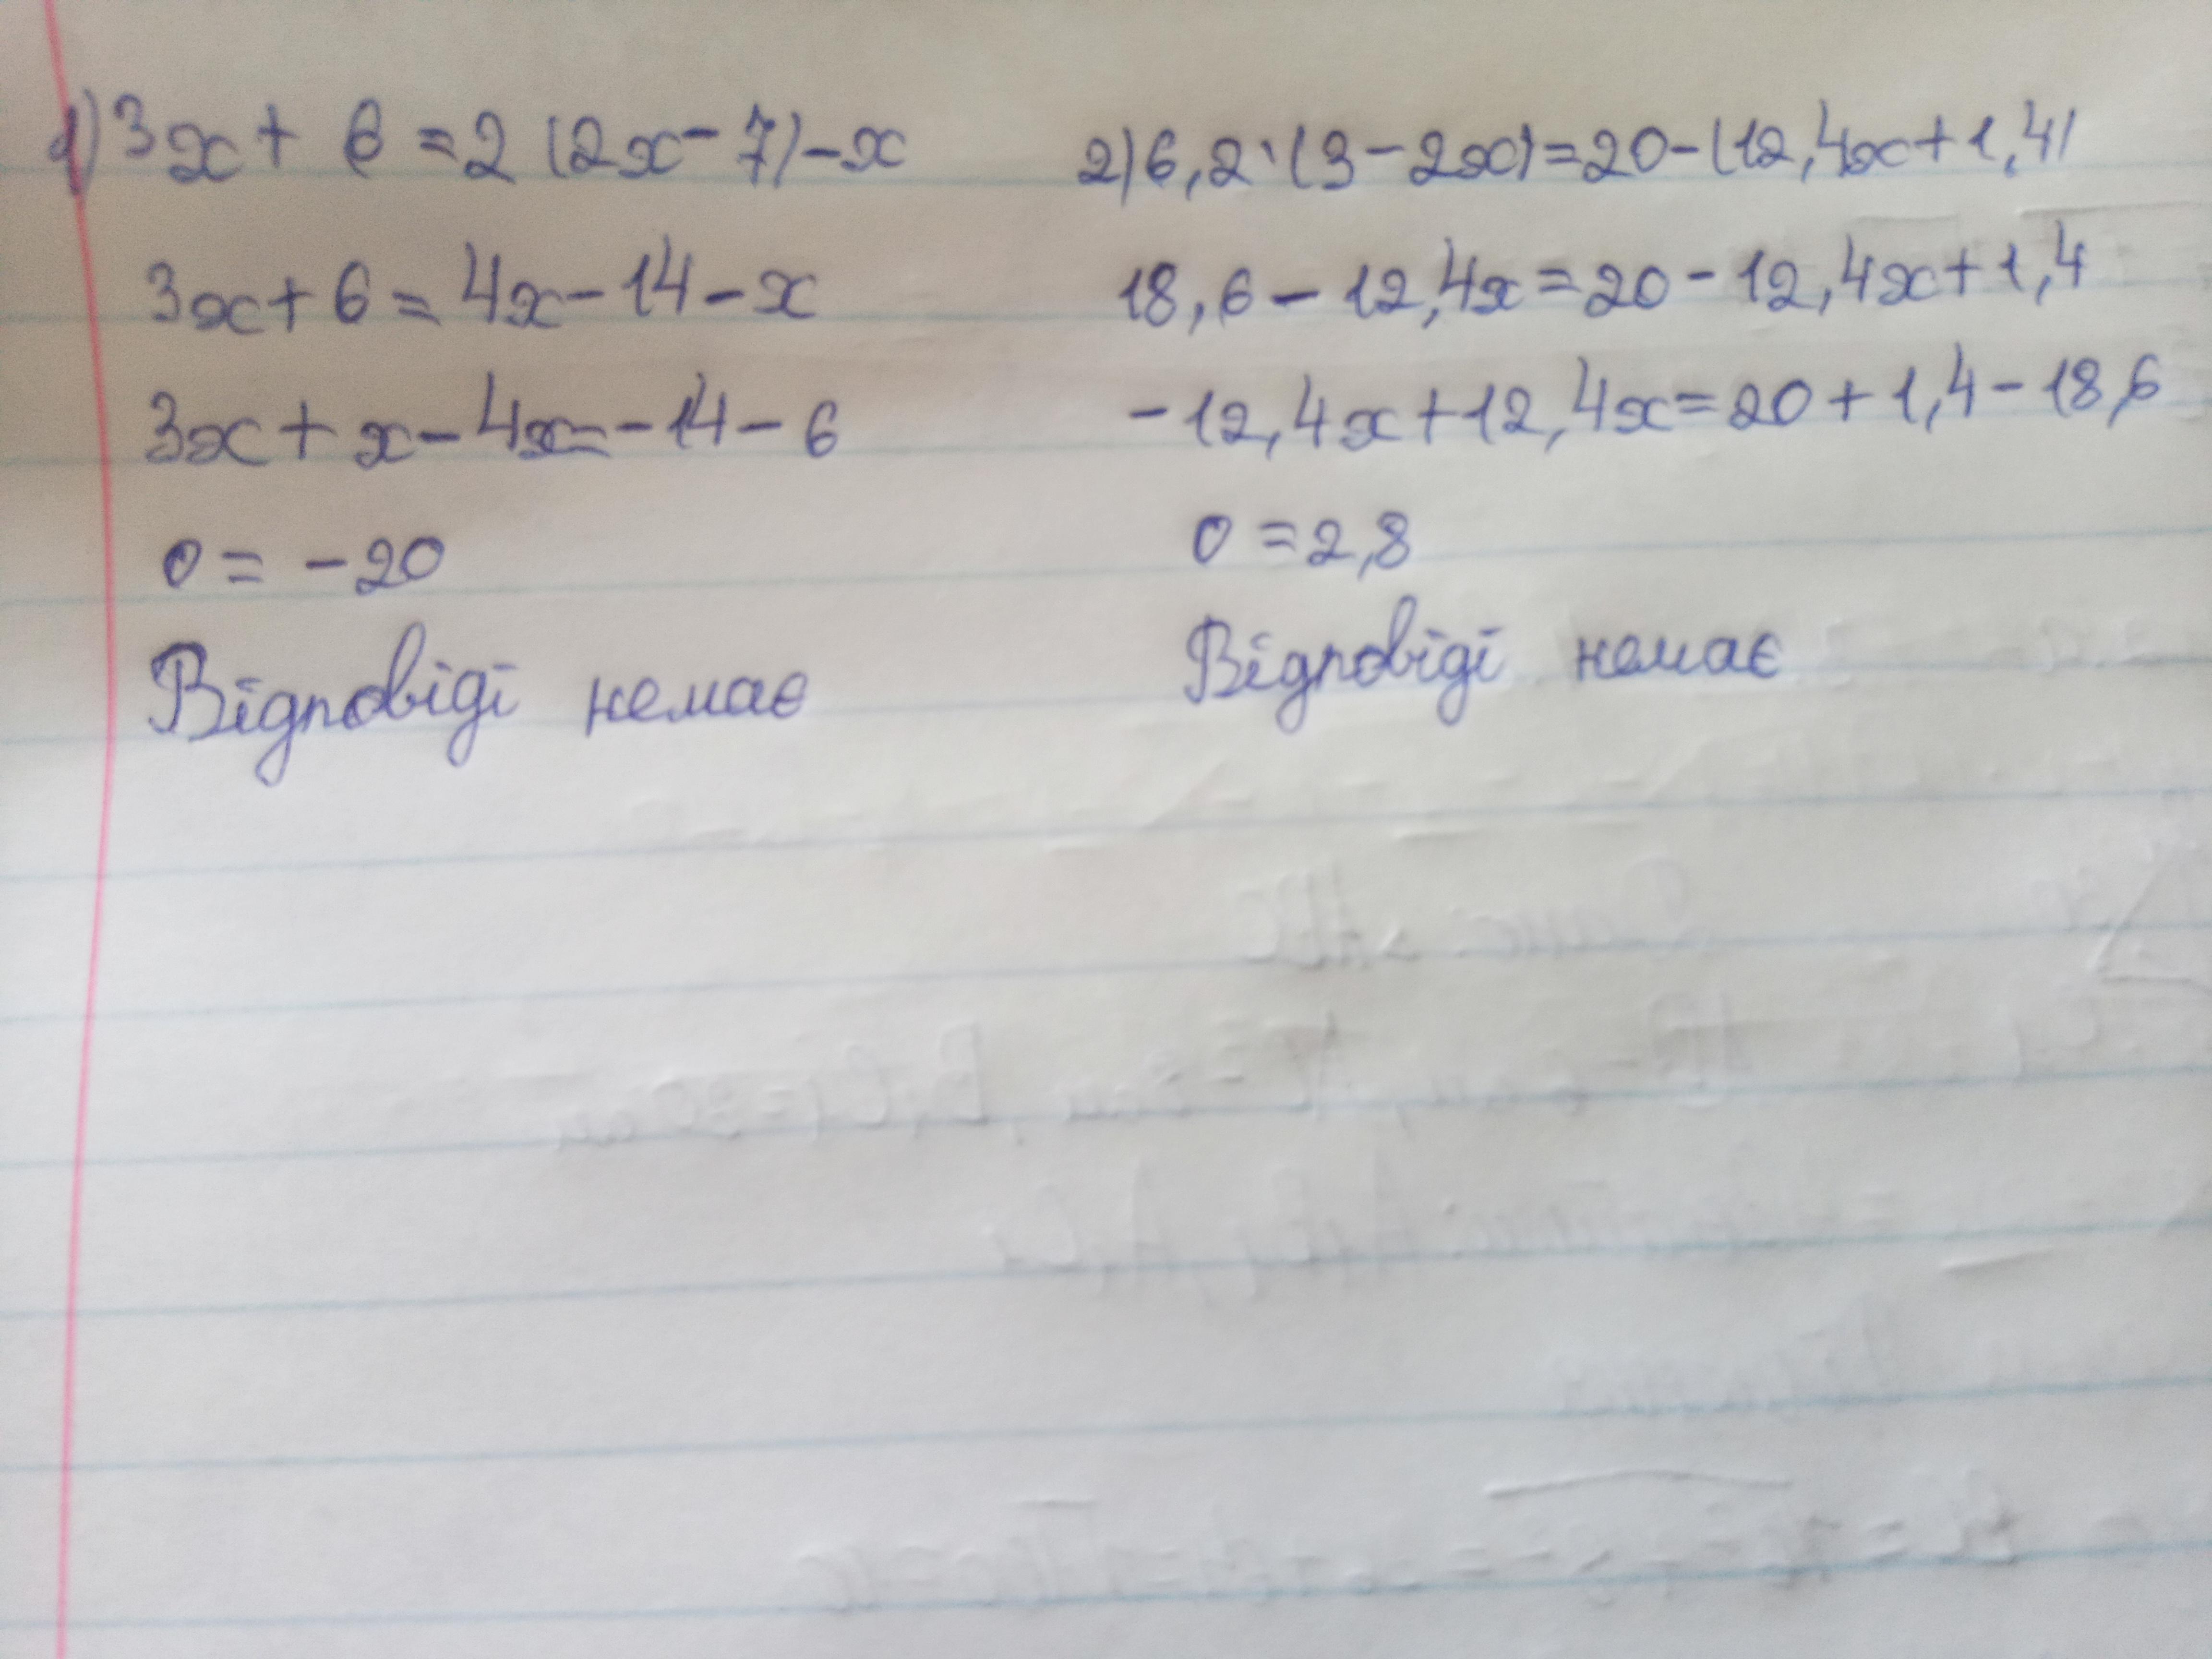 1) 3x + 6 = 2 (2x - 7) - x
3x + 6 = 4x - 14 - x
3x + x - 4x = -14 - 6
0 = -20
Відповіді немає
2) 6,2·(3 - 2x) = 20 - (12,4x + 1,4)
18,6 - 12,4x = 20 - 12,4x + 1,4
-12,4x + 12,4x = 20 + 1,4 - 18,6
0 = 2,8
Відповіді немає